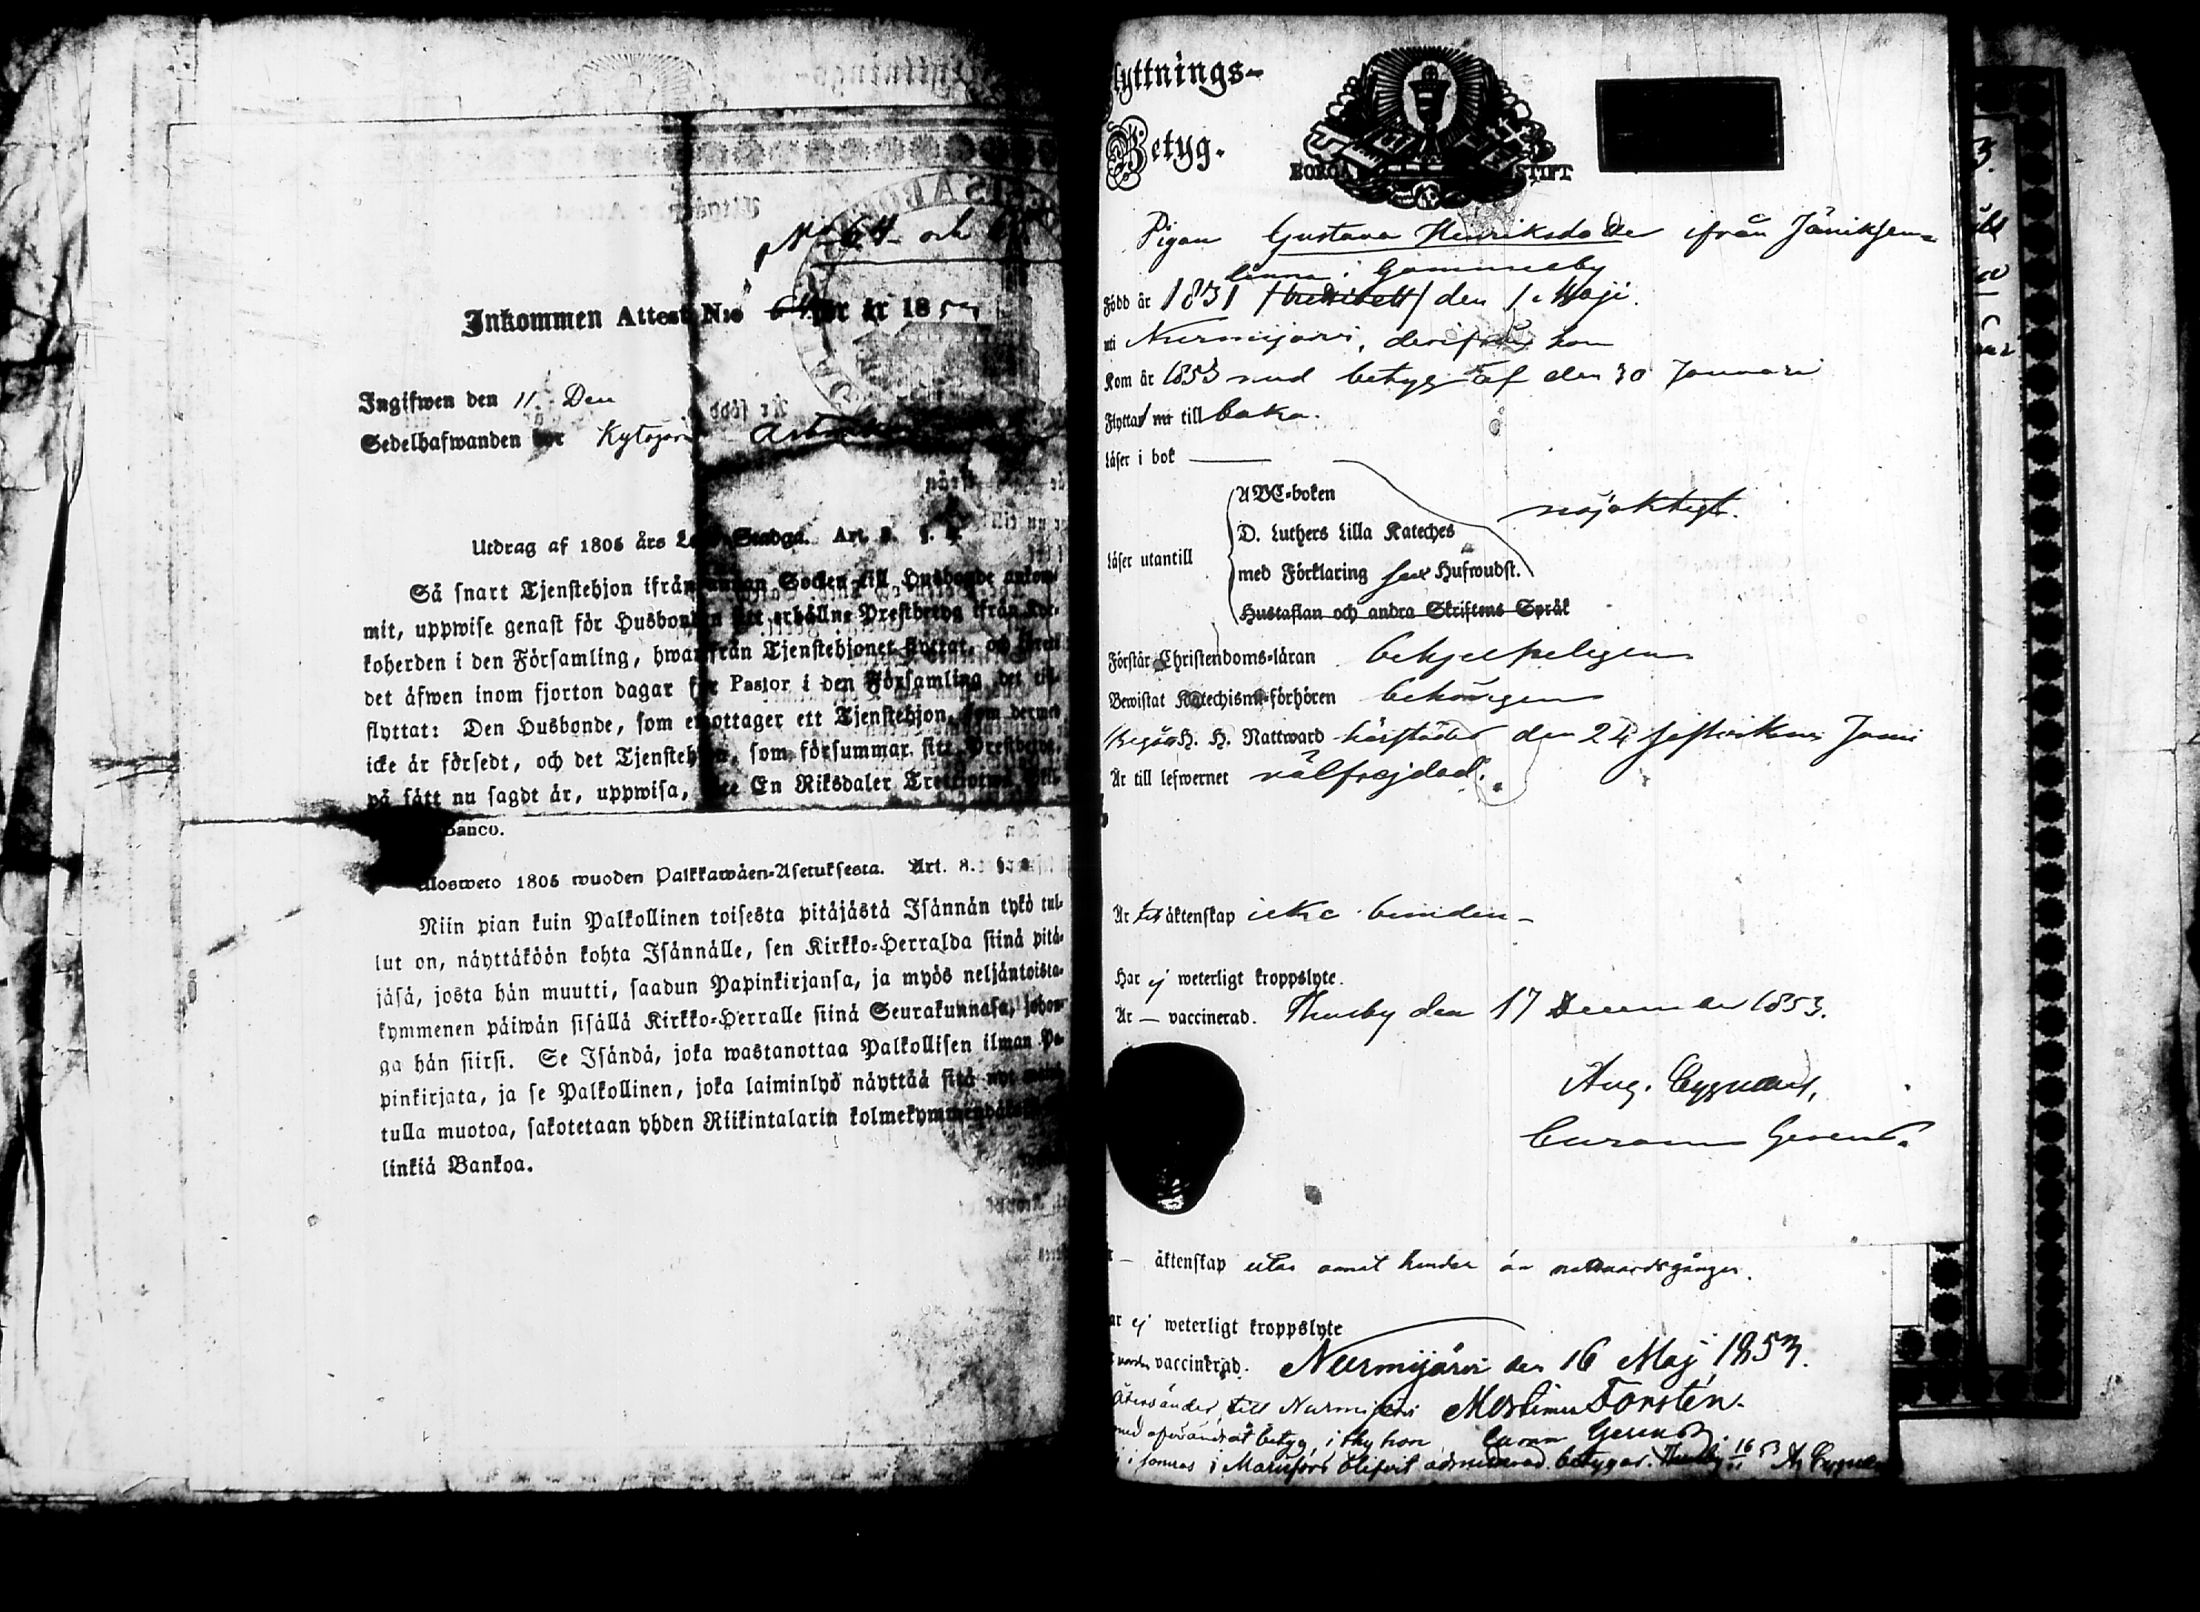 No 64 och
Inkommen Attest N:o 64 för år 185
Ingifwen den 11 Den
Sedelhafwanden bor Kytöjärvi
Utdrag af 1805 års Lego-Stadga. Art. 8. §.
Så snart Tjenstehjon ifrån annan Socken till Husbonde ankom-
mit, uppwise genast för Husbonden sitt erhållne Prestbetyg ifrån Kyr-
koherden i den Församling, hwarifrån Tjenstehjonet flyttat, och
det äfwen inom fjorton dagar för Pastor i den Församling det till-
flyttat: Den Husbonde, som emottager ett Tjenstehjon, som dermed
icke är försedt, och det Tjenstehjon, som försummar sitt Prestbetyg,
på sätt nu sagdt är, uppwisa, En Riksdaler Trettiotwå
Banco.
Ulosweto 1805 wuoden Palkkawäen-Asetuksesta. Art. 8.
Niin pian kuin Palkollinen toisesta pitäjästä Isännän tykö tul-
lut on, näyttäköön kohta Isännälle, sen Kirkko-Herralda siinä pitä-
jäsä, josta hän muutti, saadun Papinkirjansa, ja myös neljäntoista-
kymmenen päiwän sisällä Kirkko-Herralle siinä Seurakunnasa, johon-
ga hän siirsi. Se Isändä, joka wastanottaa Palkollisen ilman Pa-
pinkirjata, ja se Palkollinen, joka laiminlyö näyttää sitä nyt
tulla muotoa, sakotetaan yhden Riikintalarin kolmekymmendäkaksi
linkiä Bankoa.
Flyttnings-
Betyg.
BORGA STIFT
Pigan Gustava Henriksdotter ifrån Jäniksen-
linna i Gammelby
Född år 1831 den 1 Maji.
uti Nurmijärvi, derifrån hon
Kom år 1853 med betyg af den 30 Januari
Flyttar nu till baka.
Läser i bok
Läser utantill
ABC-boken
D. Luthers Lilla Kateches
med Förklaring sex Hufwudst.
Hustaflan och andra Skriftens Språk
nöjaktigt.
Förstår Christendoms-läran behjelpeligen
Bewistat Katechismi-förhören behörigen
Begått H. H. Nattward härstädes den 24 sistvikne Juni
Är till lefwernet välfrejdad.
Är till äktenskap icke bunden
Har ej weterligt kroppslyte.
Är vaccinerad. Thusby den 17 December 1853.
Aug. Cygnæus,
Curam Gerens.
äktenskap utan annat hinder än nattvardsgången.
ej weterligt kroppslyte
vaccinerad. Nurmijärvi den 16 Maj 1853.
Återsänder till Nurmijärvi Mortimer Forstén.
med oförändrat betyg, i thy hon Curam Gerens.
i sednas i Mariefors blifvit admitterad betygar. Thusby 16/11 53 A. Cygnæus